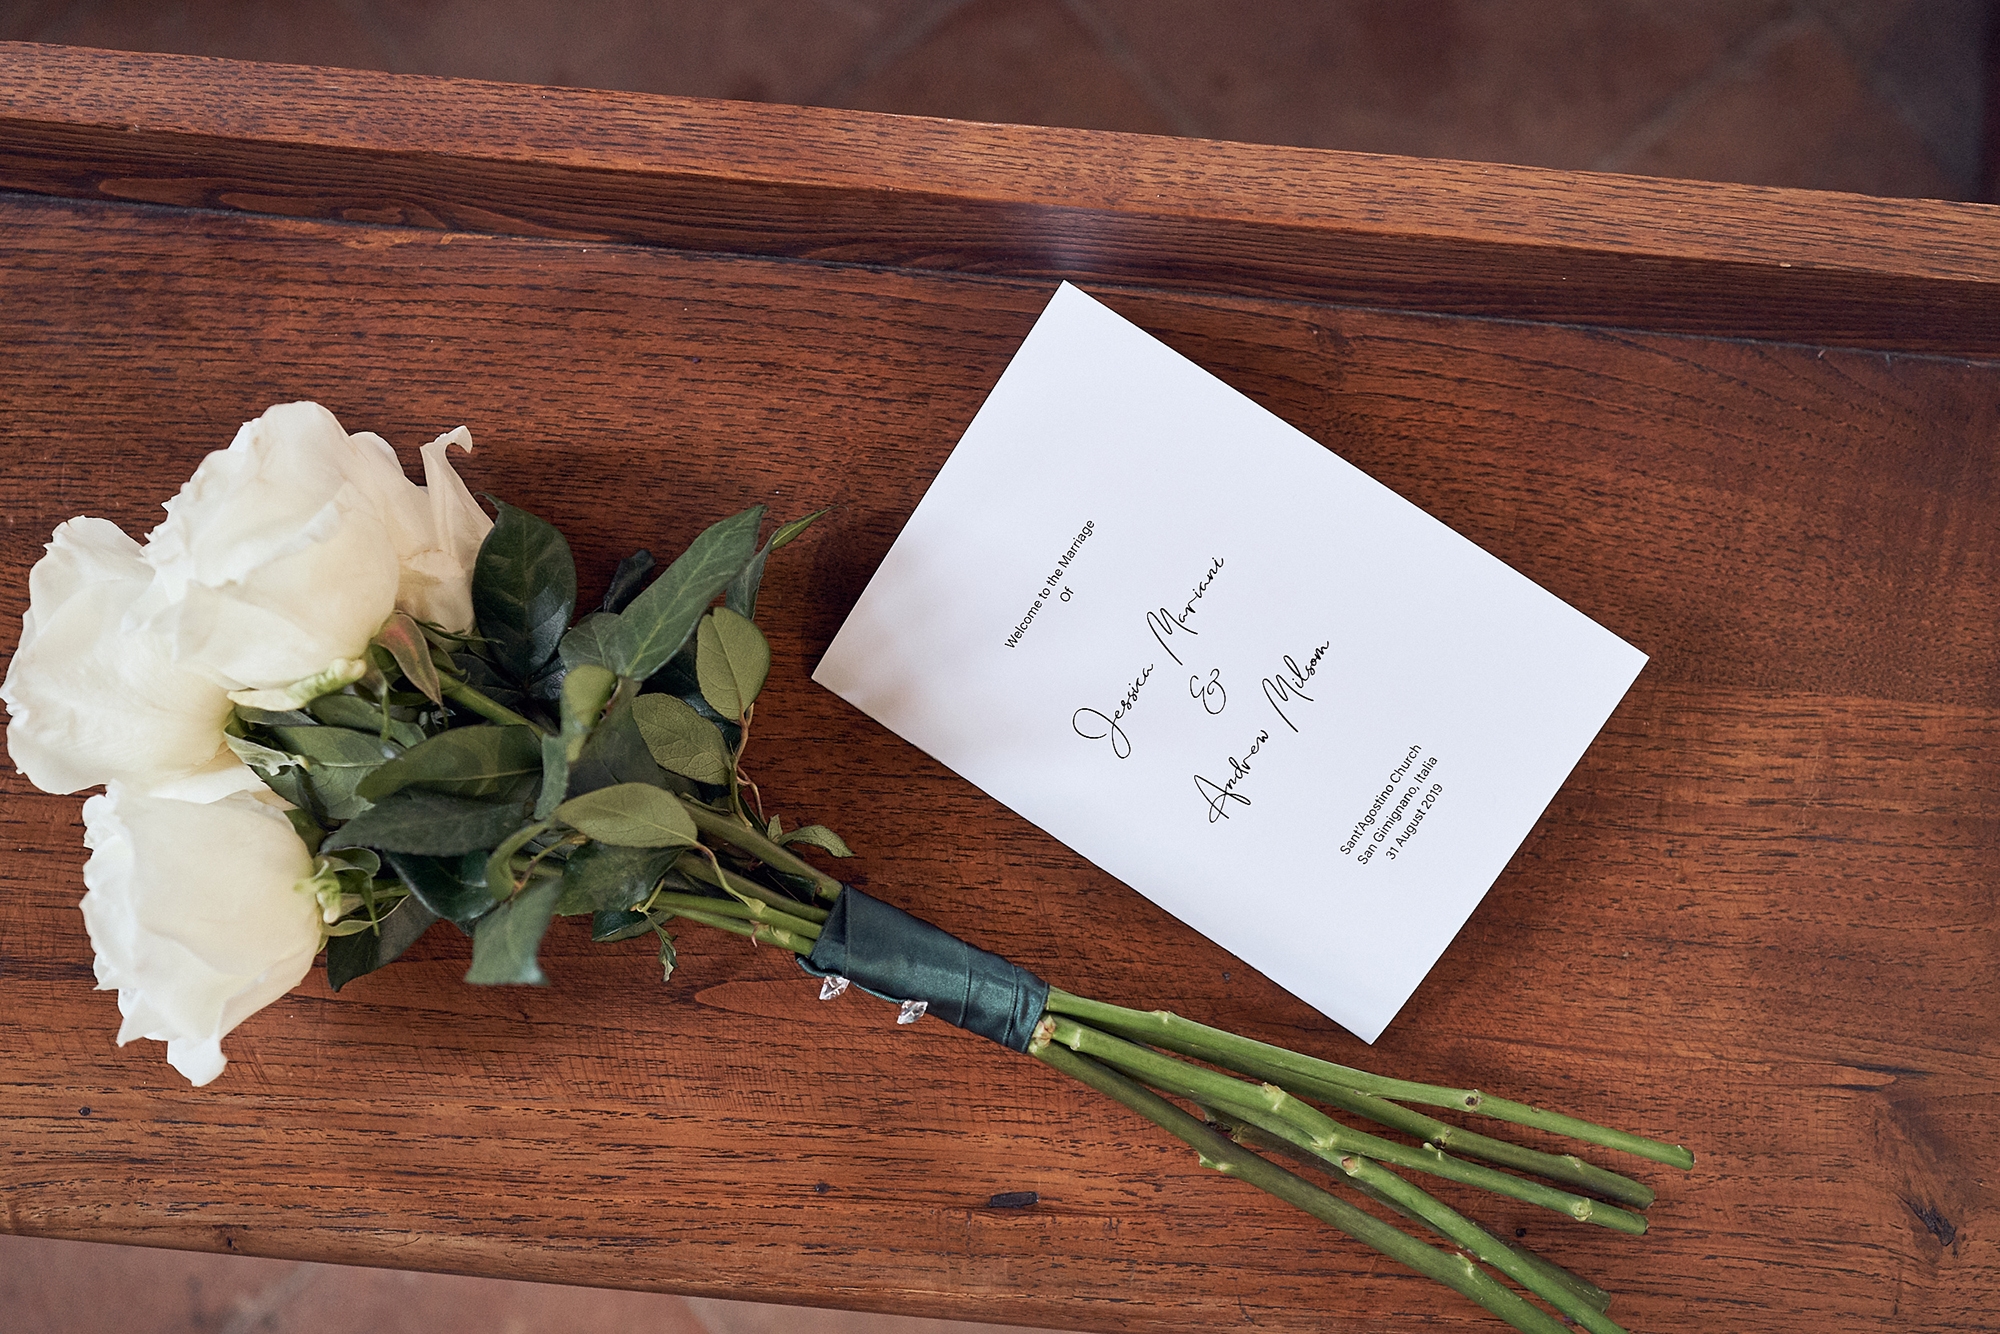 Welcome to the Marriage
Of
Jessica Mariani
&
Andrew Milsom
Sant'Agostino Church
San Gimignano, Italia
31 August 2019